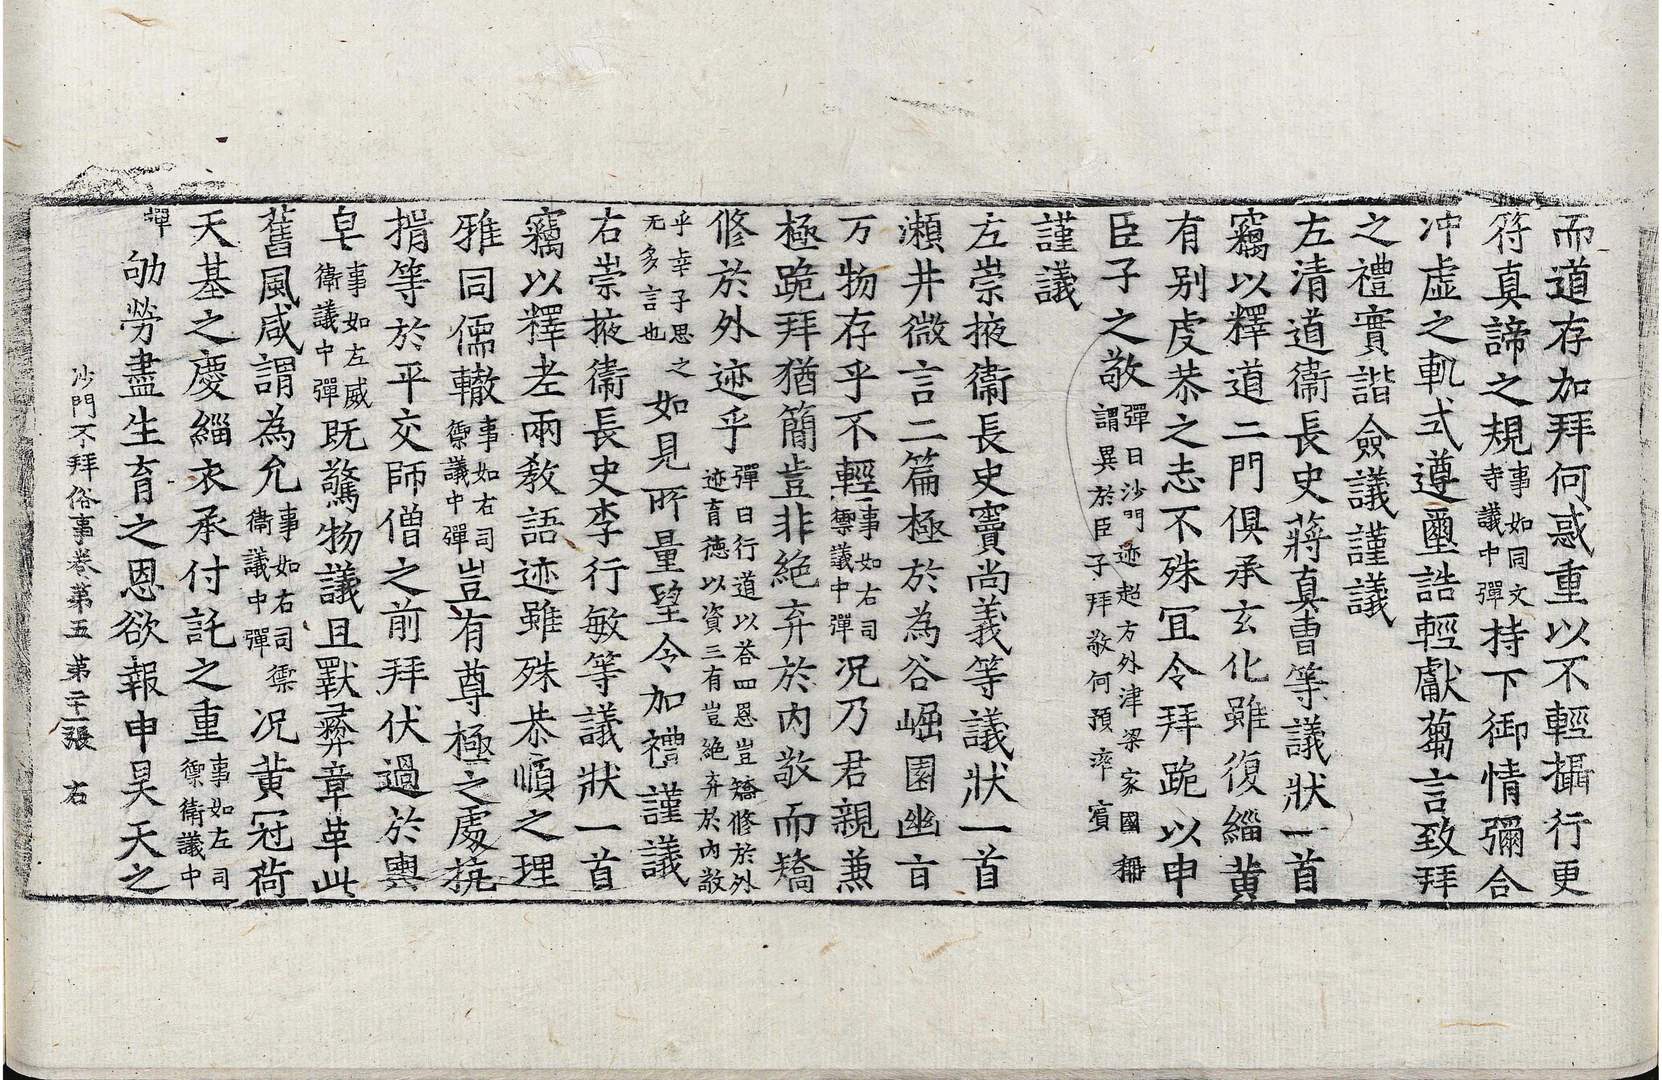 而道存加拜何惑重以不輕攝行更
符真諦之規事如同文寺議中彈持下御情彌合
沖虛之軌式遵璽誥輕獻蒭言致拜
之禮實謂僉議謹議
左清道衛長史蔣真曹等議狀一首
竊以釋道二門俱承玄化雖復緇黃
有别虔恭之志不殊冝令拜跪以申
臣子之敬彈曰沙門迹超方外津梁家國稱謂異於臣子拜敬何預率賓
謹議
左崇掖衛長史竇尚義等議狀一首
瀨井微言二篇極於為谷崛園幽亩
万物存乎不輕事如右司禦議中彈况乃君親兼
極跪拜猶簡豈非絶弃於内敬而矯
修於外迹乎彈曰行道以荅四恩豈矯修於外迹育德以資三有豈絶弃於内敬
乎幸子思之无多言也如見所量望令加禮謹議
右崇掖衛長史李行敏等議狀一首
竊以釋老兩教語迹雖殊恭順之理
雅同儒轍事如右司禦議中彈豈有尊極之處抗
揖等於平交師僧之前拜伏過於輿
皁事如左威衛議中彈既驚物議且斁彛章革此
舊風咸謂為允事如右司禦衛議中彈况黃冠荷
天基之慶緇衣承付託之重事如左司禦衛議中
彈劬勞盡生育之恩欲報申昊天之
沙門不拜俗事卷第五 第二十一張 右